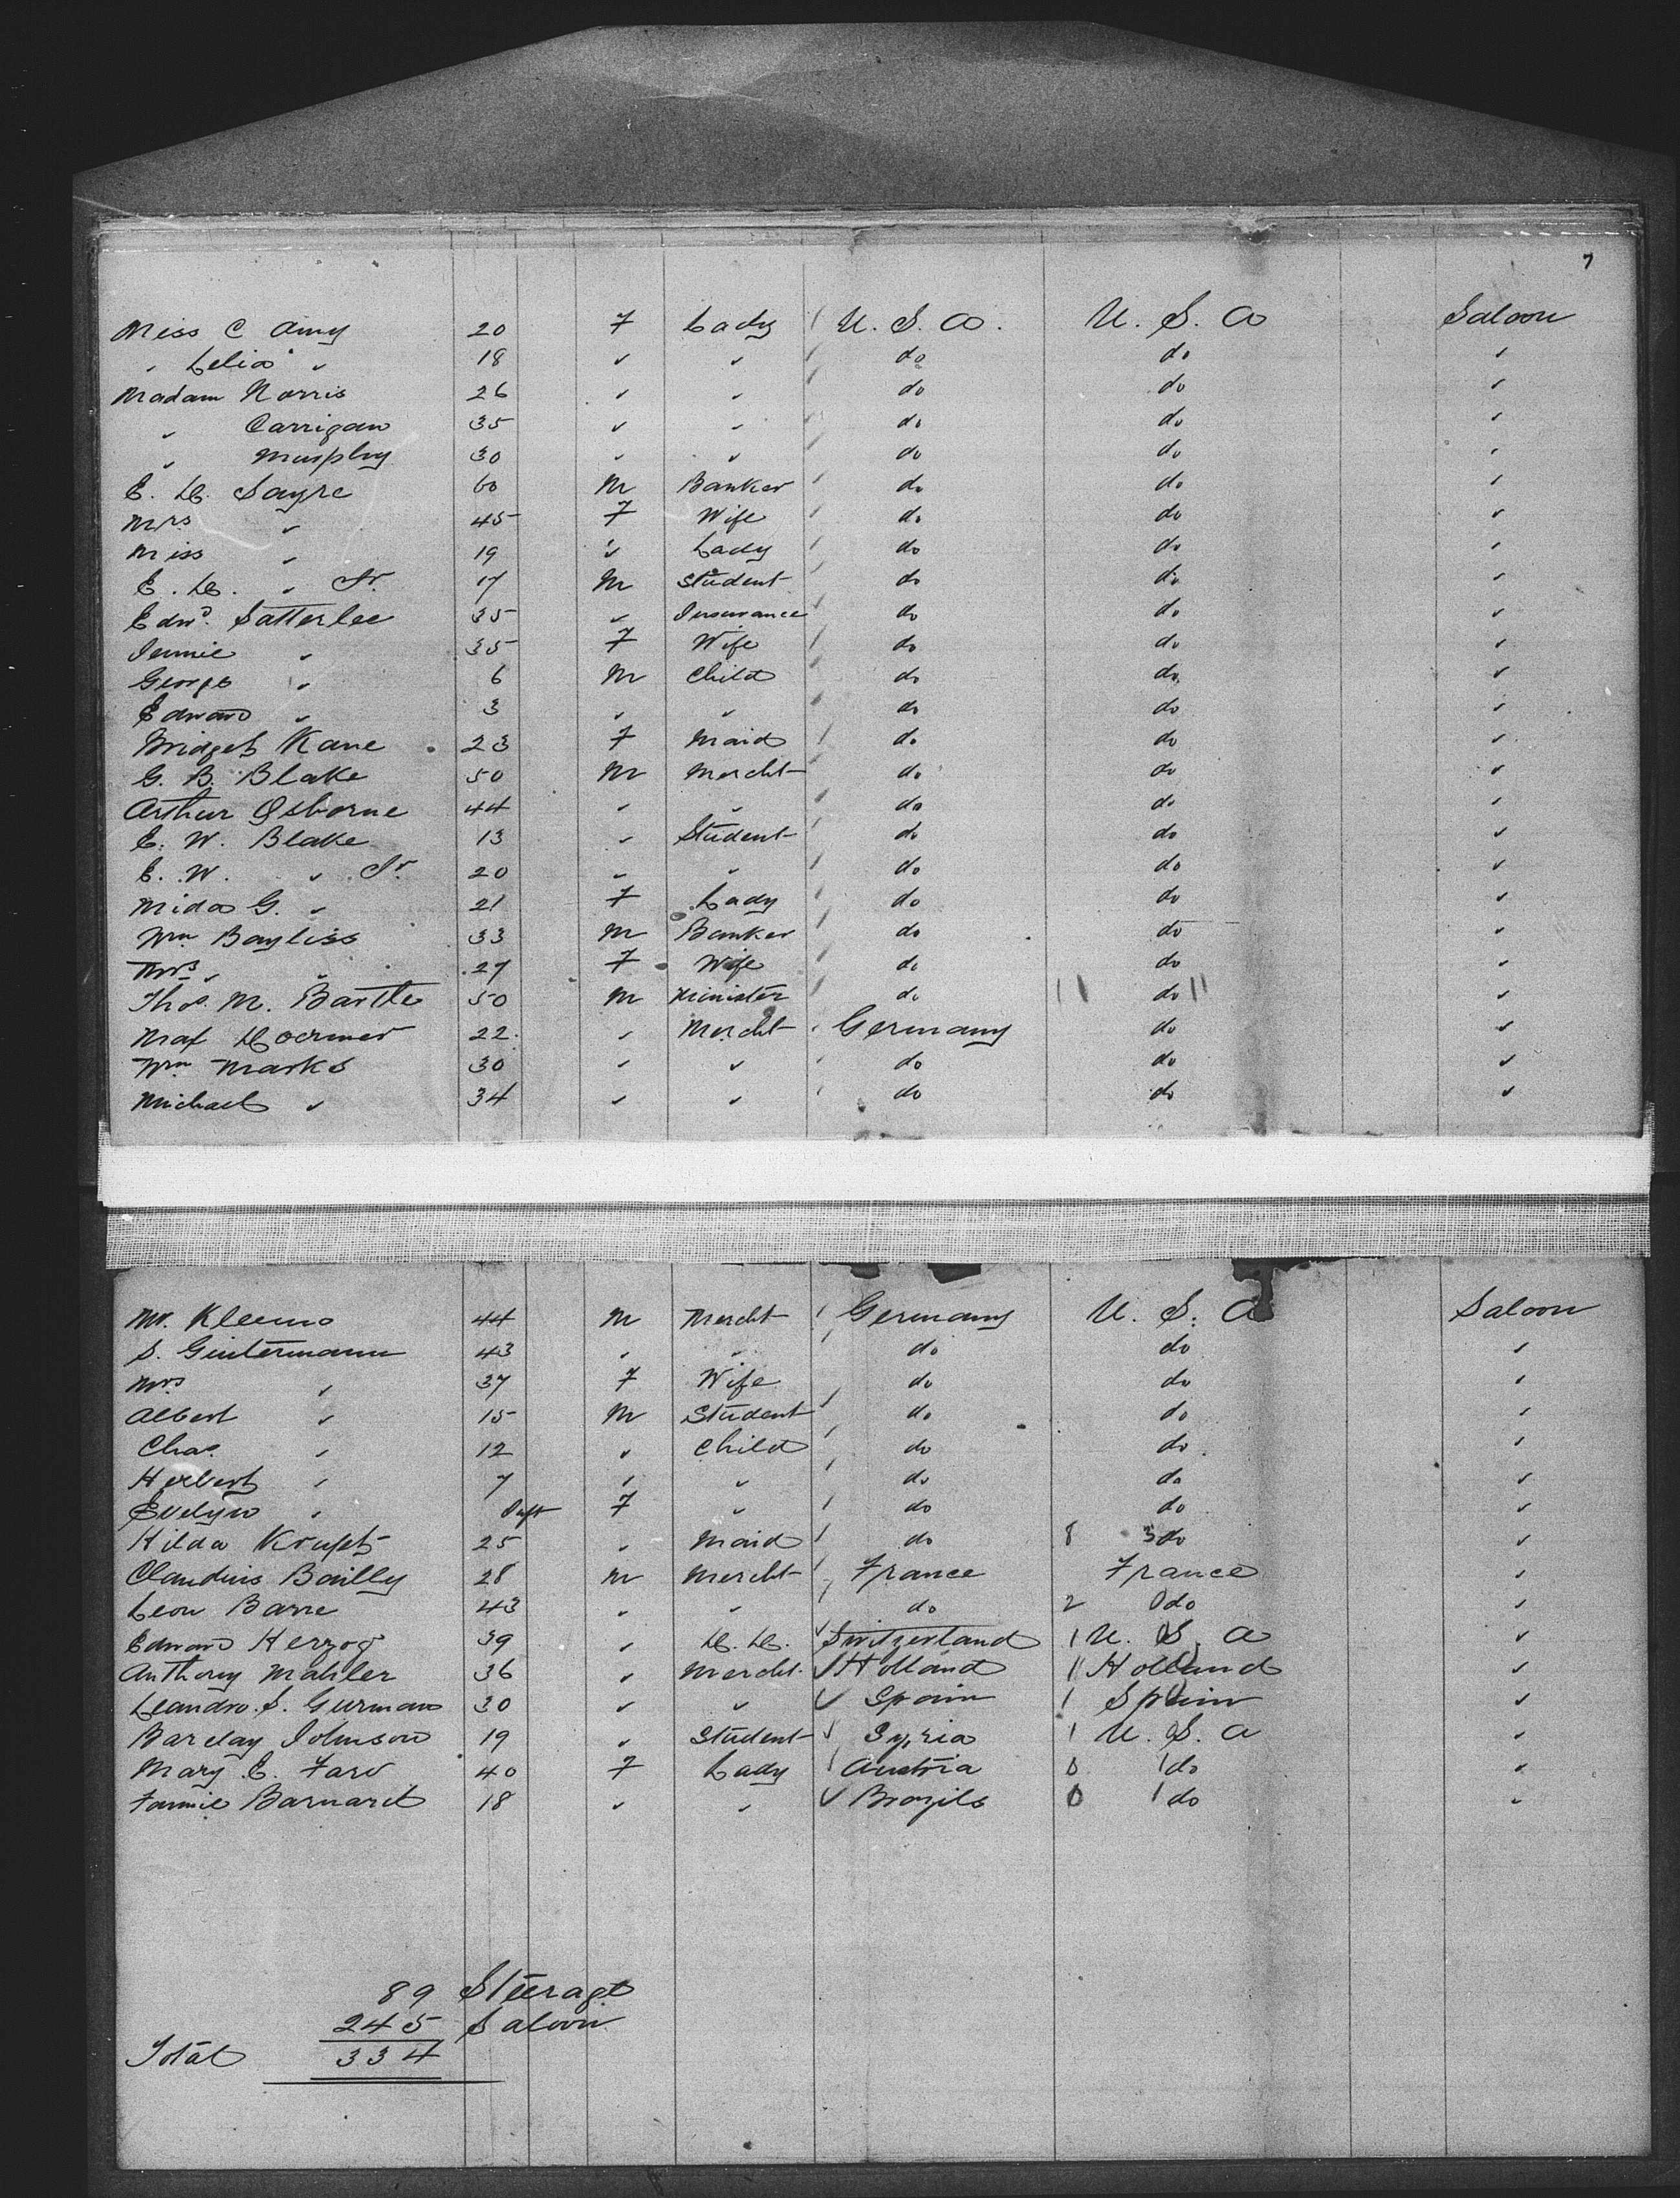 7
Miss C Amy 20 F Lady U. S. A. U. S. A Saloon
" Lelia " 18 " " do do "
Madam Norris 26 " " do do "
" Carrigan 35 " " do do "
" Murphy 30 " " do do "
E. H. Sayre 60 M Banker do do "
Mrs " 45 F Wife do do "
Miss " 19 " Lady do do "
E. H. " Jr. 17 M Student do do "
Edwd. Satterlee 35 " Insurance do do "
Jennie " 35 F Wife do do "
George " 6 M Child do do "
Edward " 3 " " do do "
Bridget Kane 23 F Maid do do "
G. B. Blake 50 M Mercht do do "
Arthur Osborne 44 " " do do "
E. W. Blake 13 " Student do do "
E. W. " Jr. 20 " " do do "
Mida G. " 21 F Lady do do "
Wm Bayliss 33 M Banker do do "
Mrs " " 27 F Wife do do "
Thos. M. Bartle 50 M Minister do 11 do 11 "
Max 22 " Mercht Germany do "
Wm Marks 30 " " do do "
Michael " 34 " " do do "
Mr. 44 M Mercht Germany U. S. A Saloon
S. Gutermann 43 " " do do "
Mrs " 37 F Wife do do "
Albert " 15 M Student do do "
Chas. " 12 " Child do do "
Herbert " 7 " " do do "
Evelyn " Inft F " do do "
Hilda 25 " Maid do 8 3 do "
Claudius Bailly 28 M Mercht France France "
Leon Barre 43 " " do 2 0 do "
Edward Herzog 39 " Switzerland 1 U. S. A "
Anthony Mahler 36 " Mercht. Holland 1 Holland "
Leandro. S. 30 " " Spain 1 Spain "
Barclay Johnson 19 " Student Syria 1 U. S. A "
Mary E. 40 F Lady Austria 0 1 do "
Fannie Barnard 18 " " Brazils 0 1 do "
89 Steerage
245 Saloon
Total 334